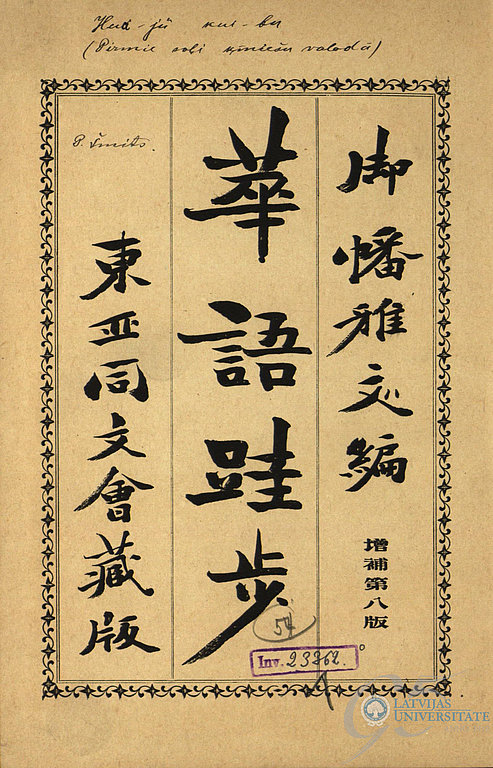 Hua-jü kui-bu
(Pirmie soli ķīniešu valodā)
P. Šmits.
御幡雅文編
增補第八版
華語跬步
東亞同文會藏版
54
Inv. 23262.
LATVIJAS
UNIVERSITATE